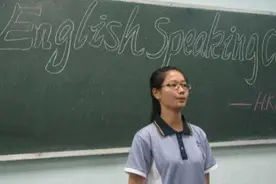 English Speaking C